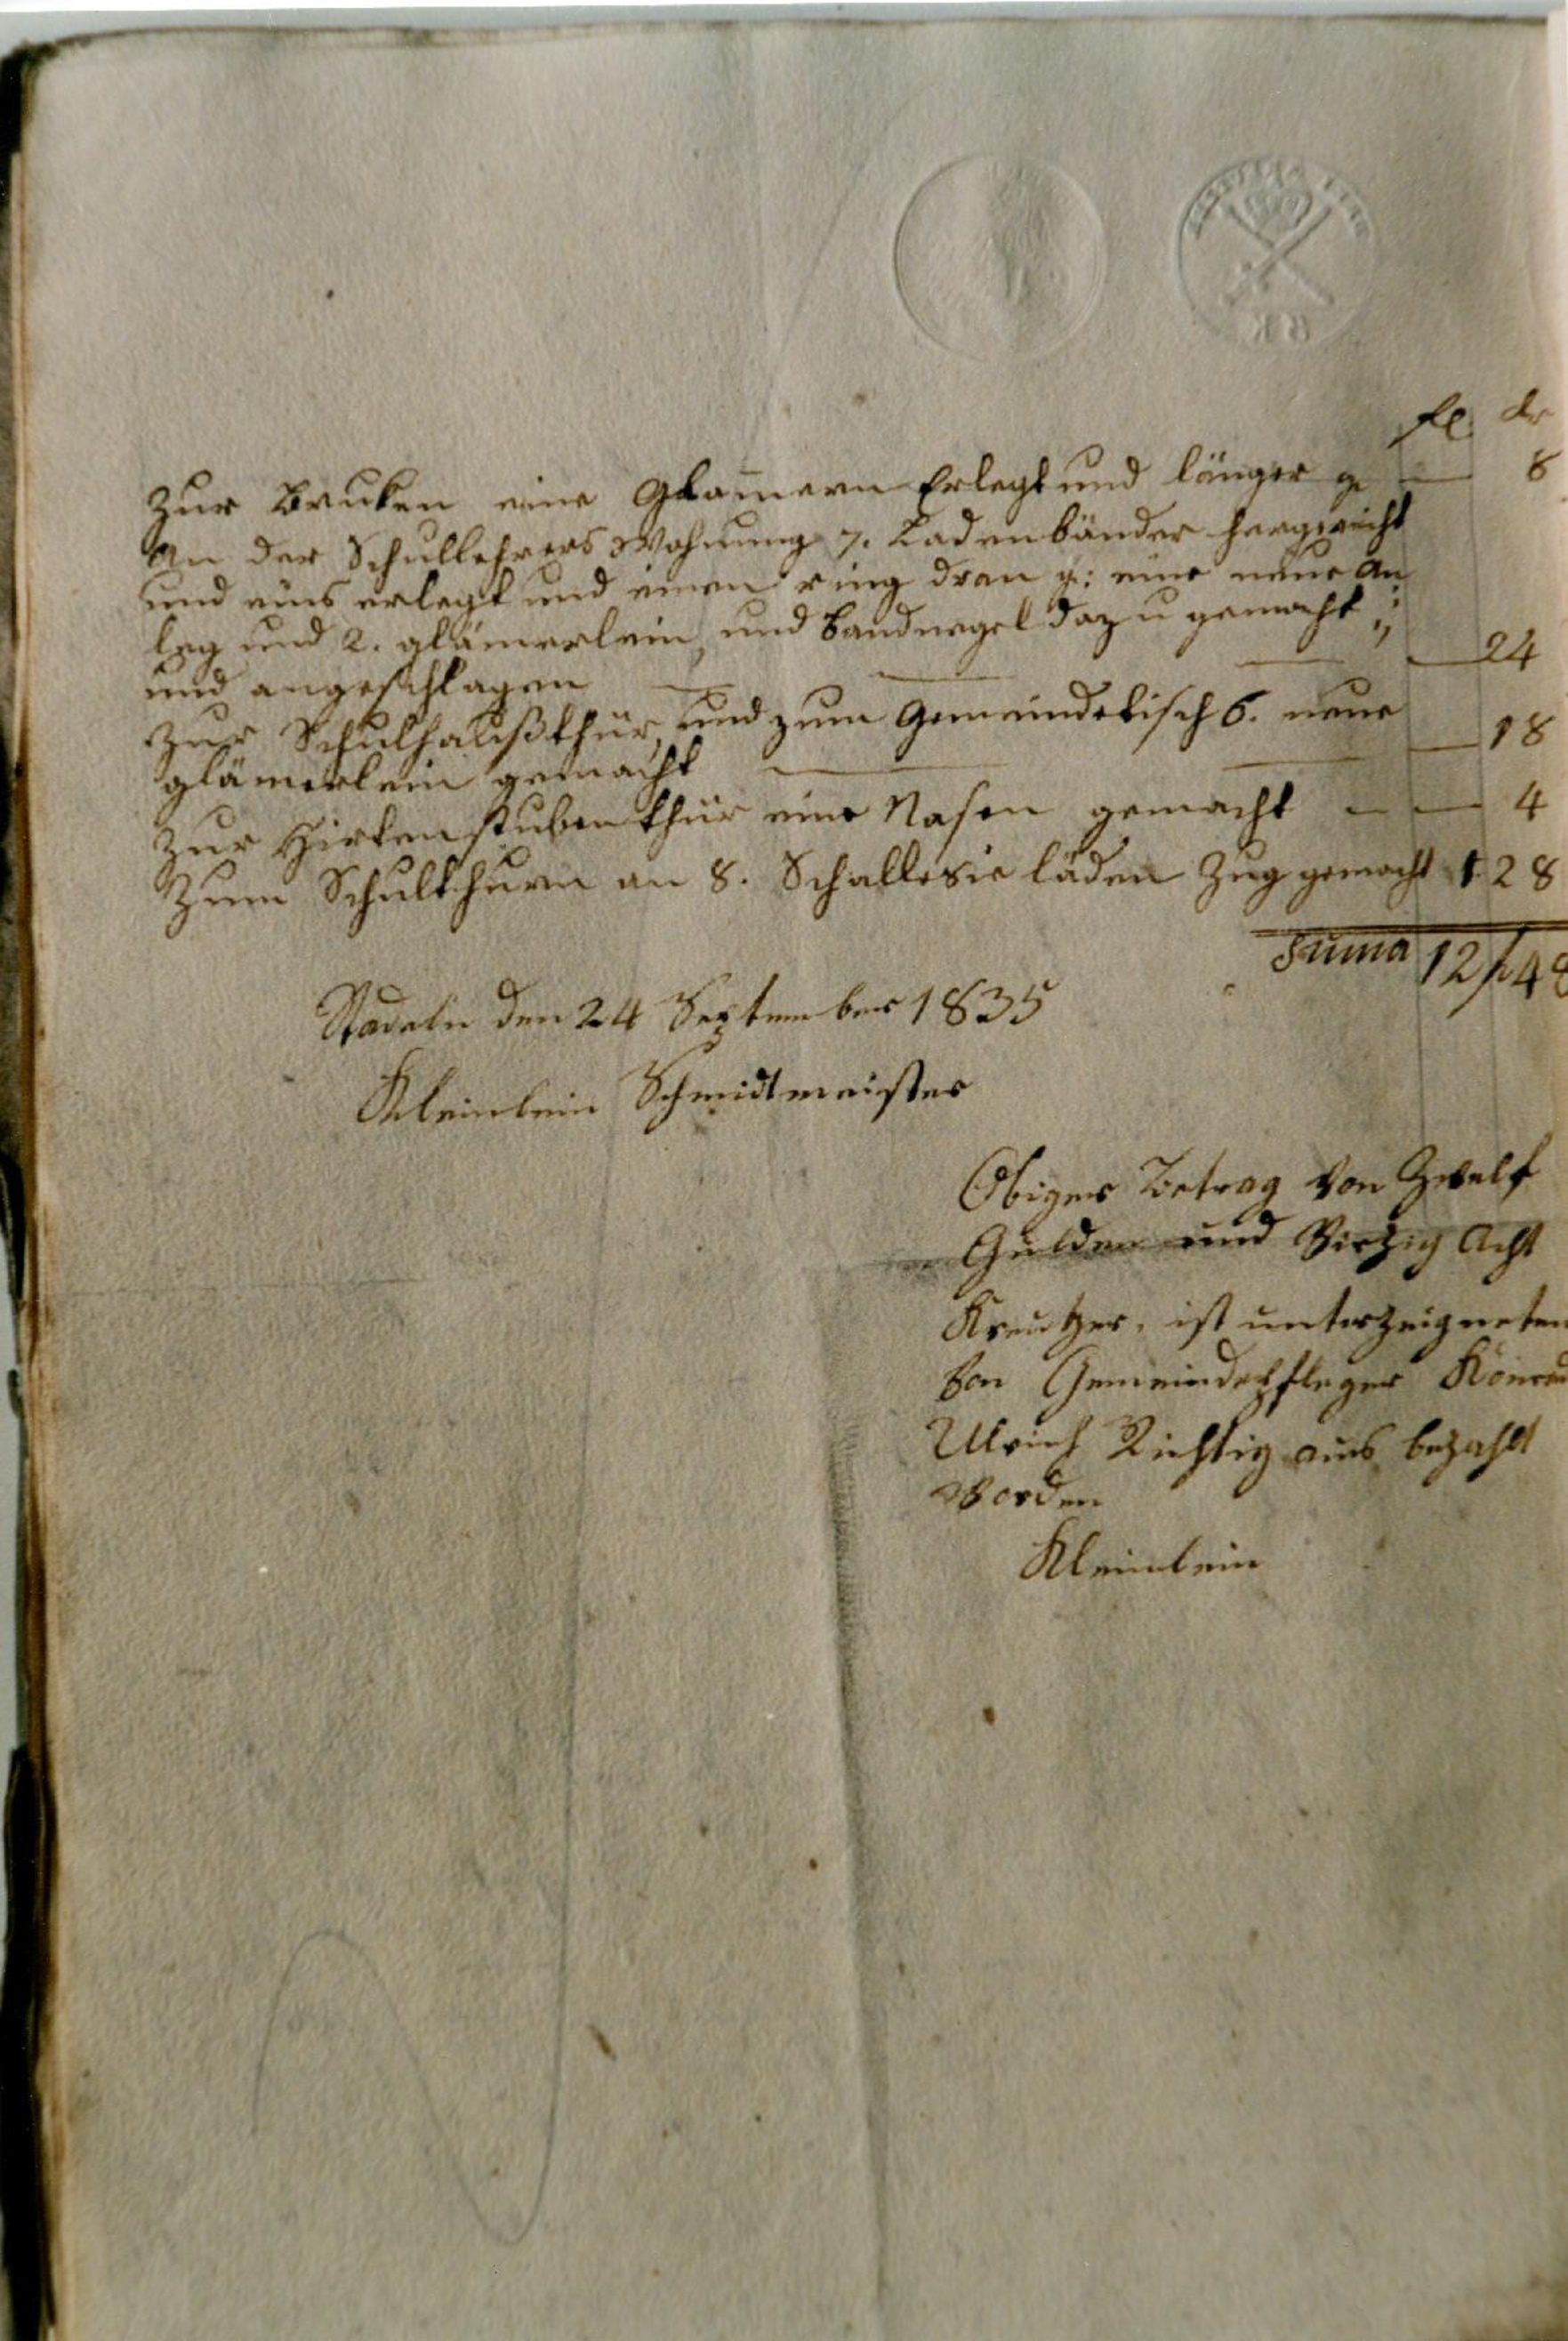 fl kr
Zur Bruken eine Glam̄ern Erlegt und länger g. — 8
An der Schullehrers Wohnung 7. Ladenbänder hergericht
und eins erlegt und einen ring dran g: eine neue An
leg und 2. glämerlein, und Bandnegel dazu gemacht ;
und angeschlagen — — — — 24
Zur Schulhaußthür, und zum Gemeindetisch 6. neue
glämerlein gemacht — — — 18
Zur Hirtenstubenthür eine Nasen gemacht – — 4
Zum Schulthurn an 8. Schallesie läden Zug gemacht 1 28
Suma 12 48
Stadeln den 24 September 1835
Kleinlein Schmidtmeister
Obiger Betrag von Zwelf
Gulden und Vierzig Acht
Kreutzer, ist unterzeigneten
von Gemeindepfleger Konrad
Ulrich Richtig aus bezahlt
Worden
Kleinlein